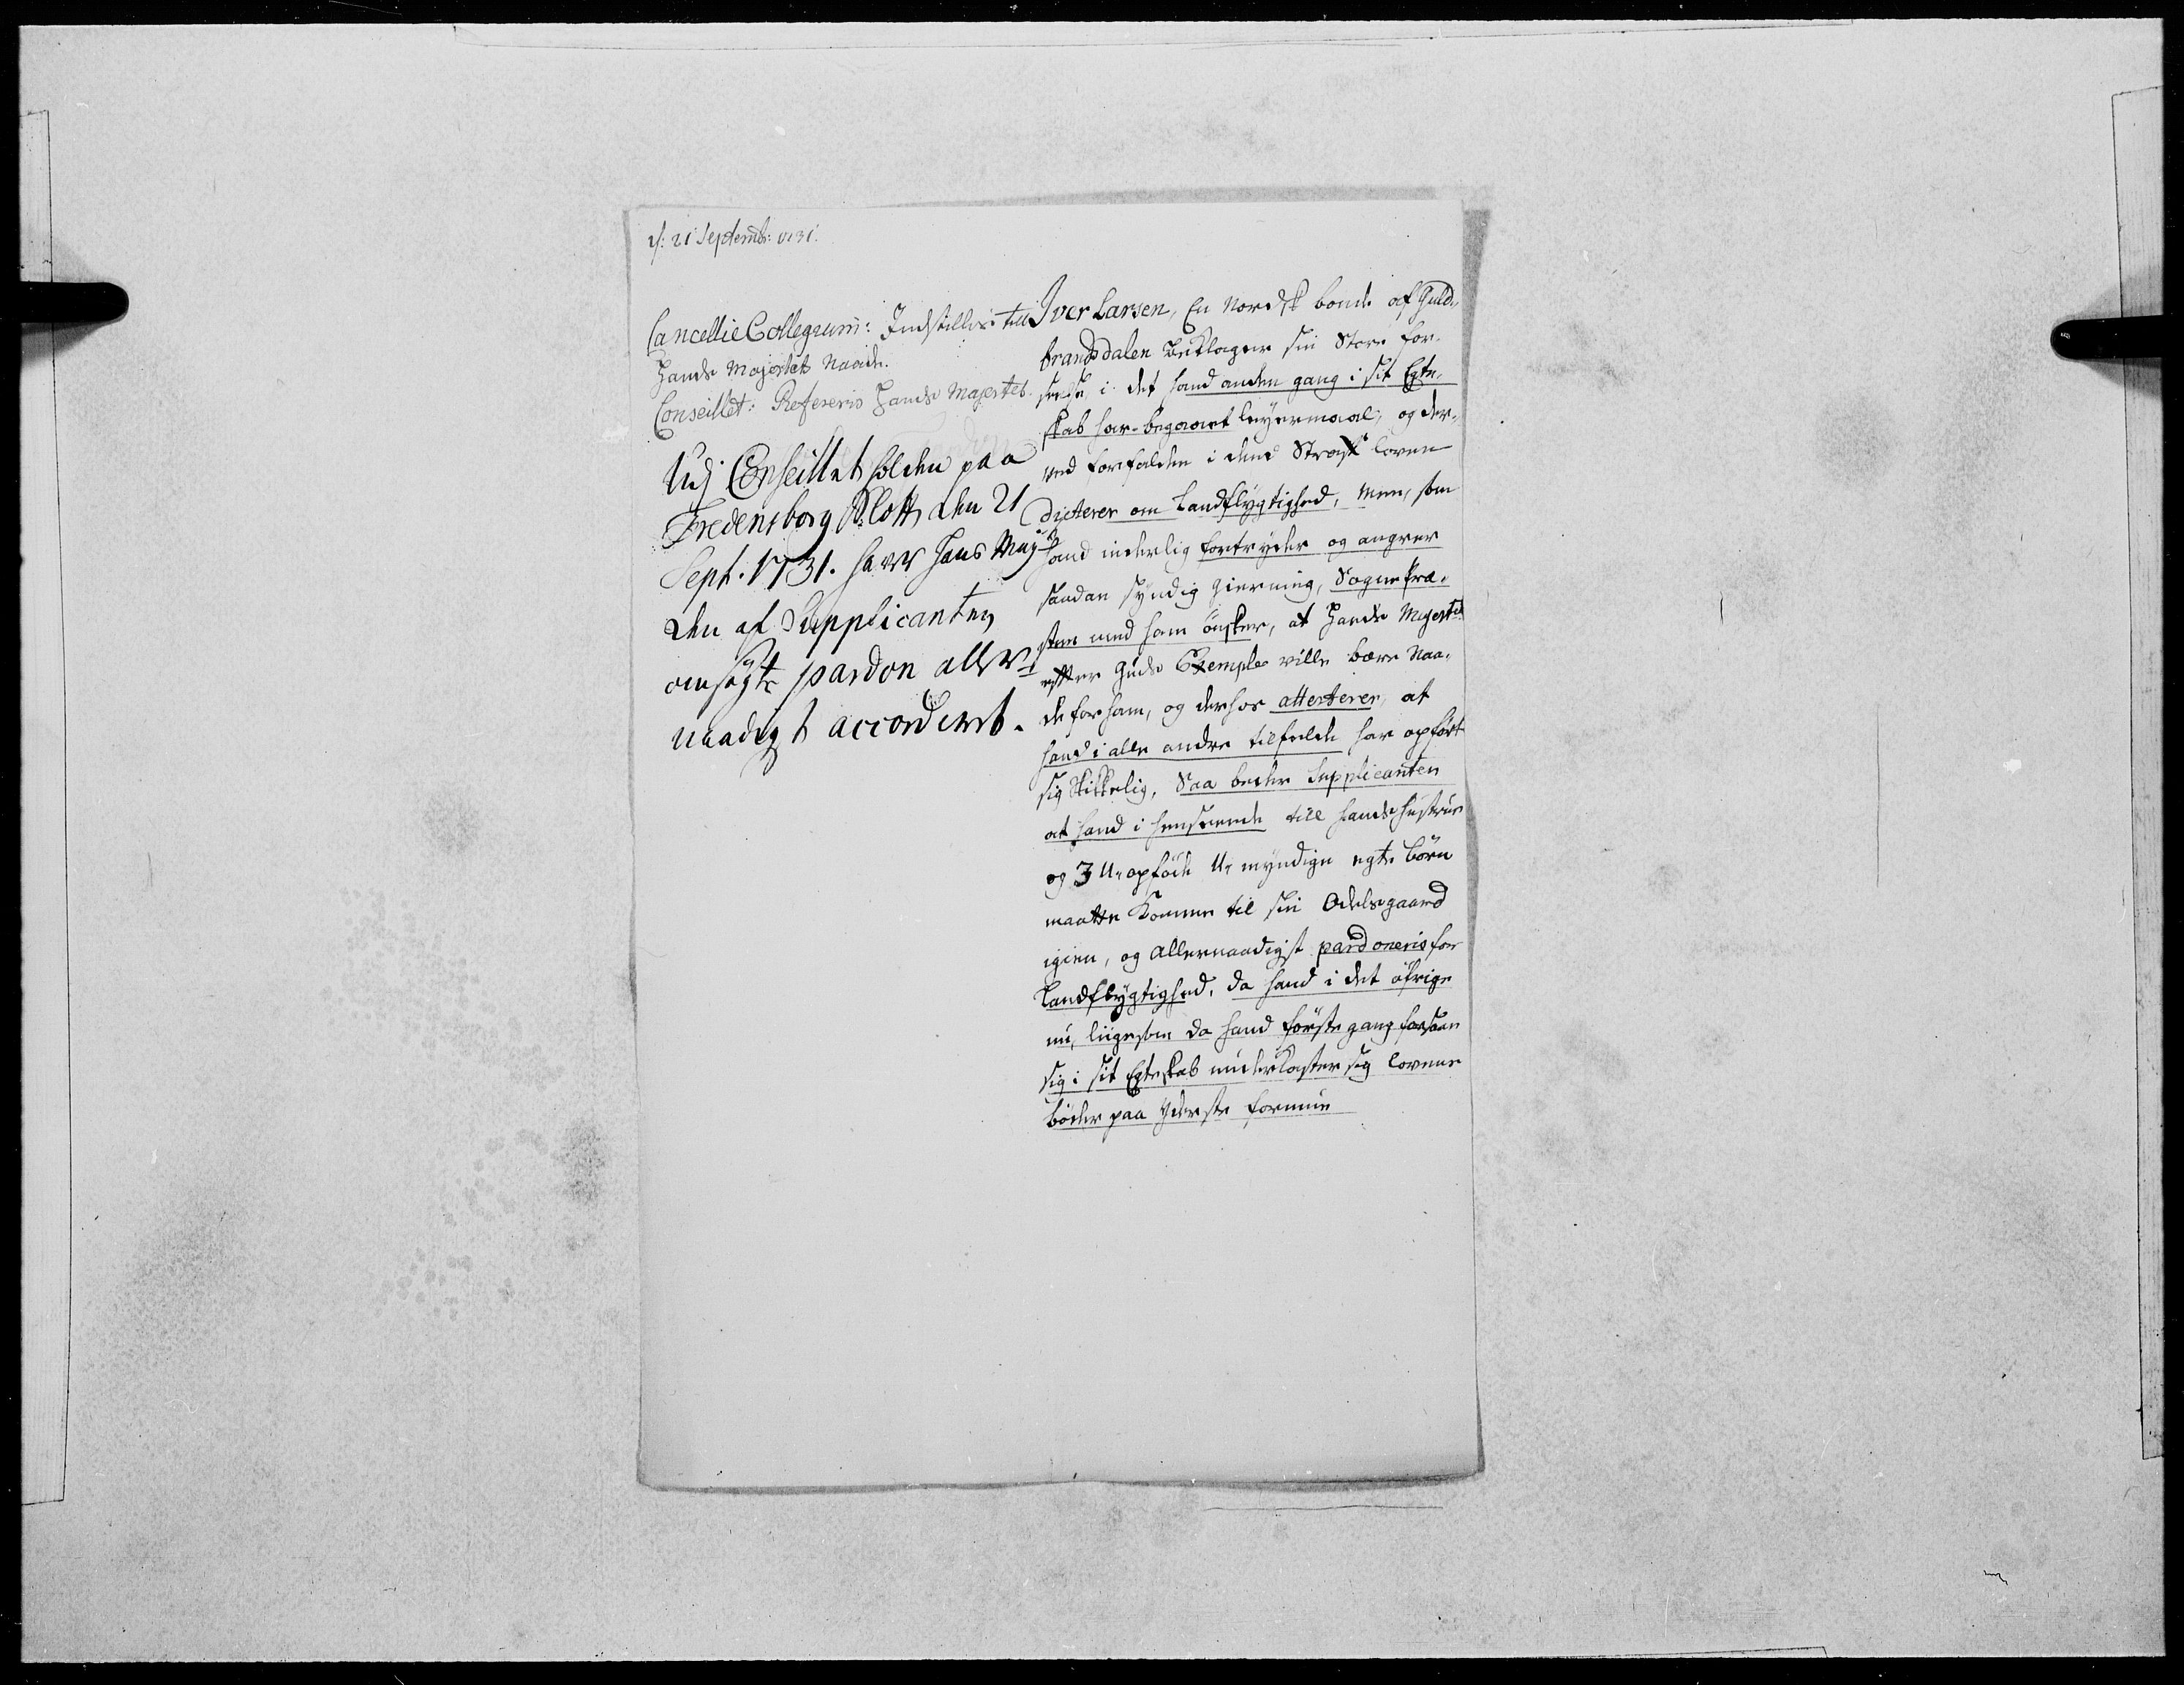 d: 21 Septembr: 1731.
Cancellie Collegium: Indstilles till
Hands Majestets Naade.
Conseillet: Refereris Hands Majestet.
Udj Conseillet holden paa
Fredensborg Slott den 21
Sept. 1731. haver Hans Mayt
den af Supplicanten
ansøgte pardon aller
naadigst accorderet.
Iver Larsen, En Nordsk bonde af Guld-
brandsdalen beklager sin Store for-
seelse i det hand anden gang i sit Egte-
skab har begaaet leyermaal, og der-
ved forfalden i dend Straf loven
dicterer om Landflygtighed, men, som
hand inderlig fortryder og angrer
saadan syndig gierning, Sognepræ-
sten med ham ønsker, at Hands Majestet
efter Guds Exempler ville bære Naa-
de for ham, og derhos attesterer, at
hand i alle andre tilfelde har opført
sig skikkelig, Saa beder Supplicanten
at hand i henseende till hands hustrue
og 3 U-opføde U-myndige egte børn
maatte komme til sin Odelsgaard
igien, og Allernaadigst pardoneris for
Landflygtighed, da hand i det øfrige
nu, liigesom da hand første gang forsaae
sig i sit Egteskab underkaster sig lovens
bøder paa yderste formue